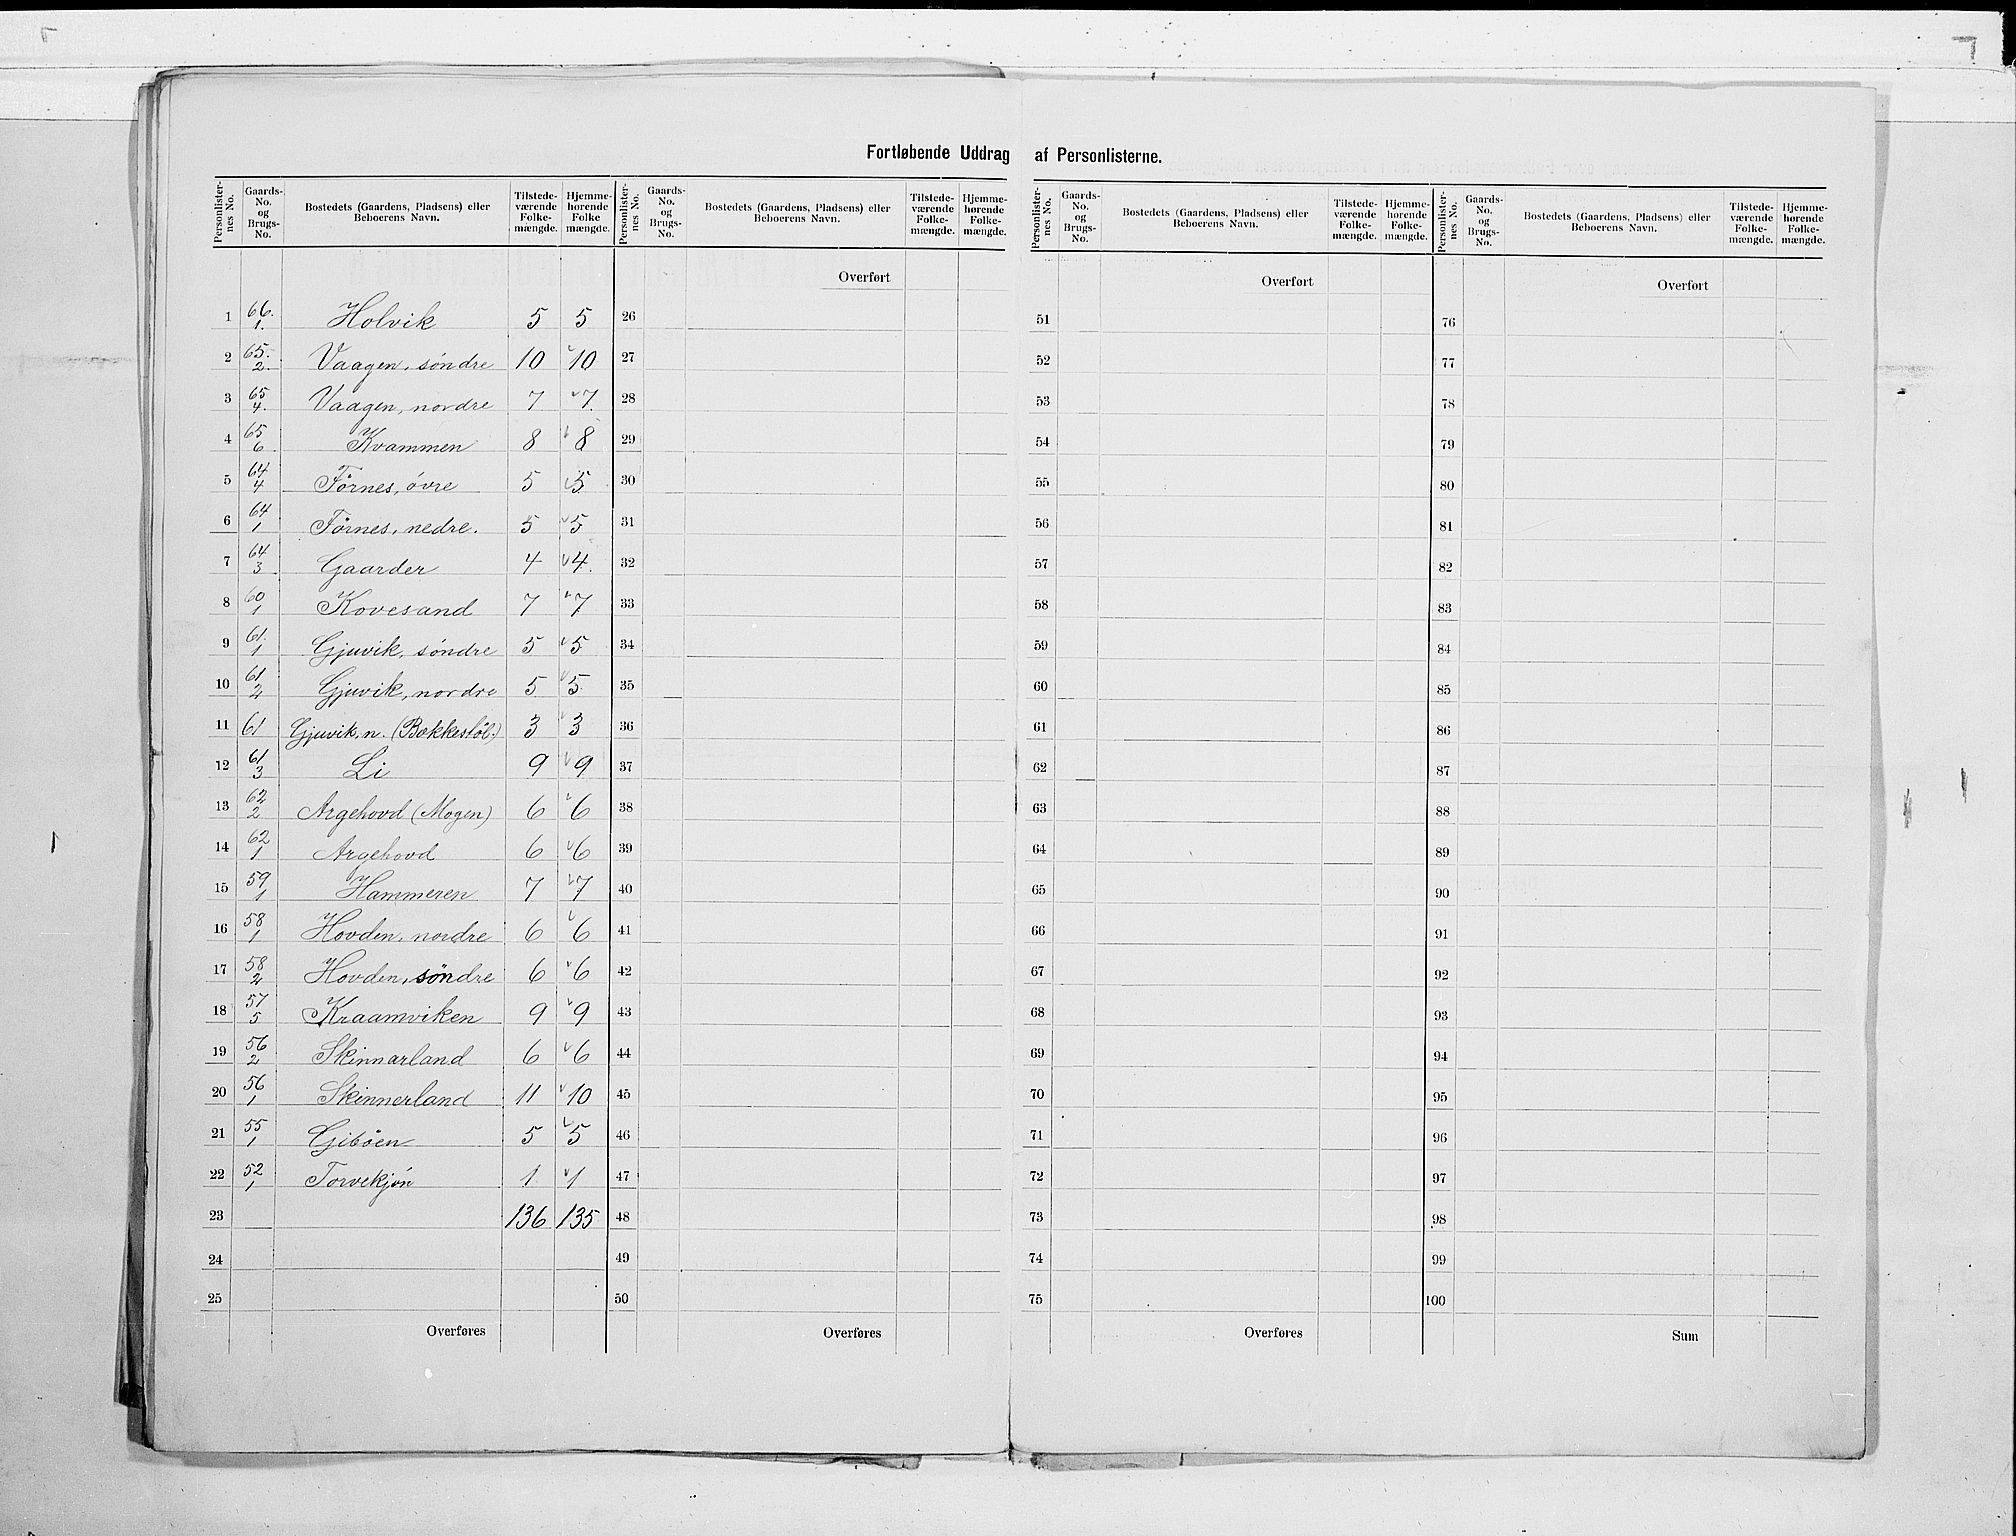 Fortløbende Uddrag af Personlisterne.
Personlisternes No. | Gaards-No. og Brugs-No. | Bostedets (Gaardens, Pladsens) eller Beboerens Navn. | Tilstedeværende Folkemængde. | Hjemmehørende Folkemængde.
1 | 66. 1. | Holvik | 5 | 5
2 | 65. 2. | Vaagen, søndre | 10 | 10
3 | 65 4. | Vaagen, nordre | 7 | 7.
4 | 65 6 | Kvammen | 8 | 8
5 | 64 4 | Förnes, övre | 5 | 5
6 | 64 1 | Förnes, nedre. | 5 | 5
7 | 64 3 | Gaarder | 4 | 4.
8 | 60 1 | Kovesand | 7 | 7
9 | 61. 1 | Gjuvik, søndre | 5 | 5
10 | 61 2 | Gjuvik, nordre | 5 | 5
11 | 61 | Gjuvik, n. (Bækkestöl.) | 3 | 3
12 | 61 3 | Li | 9 | 9
13 | 62 2 | Argehovd (Mogen) | 6 | 6
14 | 62 1 | Argehovd | 6 | 6
15 | 59 1 | Hammeren | 7 | 7
16 | 58 1 | Hovden, nordre | 6 | 6
17 | 58 2 | Hovden, söndre | 6 | 6
18 | 57 5 | Kraamviken | 9 | 9
19 | 56 2 | Skinnarland | 6 | 6
20 | 56 1 | Skinnerland | 11 | 10
21 | 55 1 | Gibøen | 5 | 5
22 | 52 1 | Torvekjøn | 1 | 1
23 | 136 | 135
24
25
Overføres
Personlisternes No. | Gaards-No. og Brugs-No. | Bostedets (Gaardens, Pladsens) eller Beboerens Navn. | Tilstedeværende Folkemængde. | Hjemmehørende Folkemængde.
Overført
26
27
28
29
30
31
32
33
34
35
36
37
38
39
40
41
42
43
44
45
46
47
48
49
50
Overføres
Personlisternes No. | Gaards-No. og Brugs-No. | Bostedets (Gaardens, Pladsens) eller Beboerens Navn. | Tilstedeværende Folkemængde. | Hjemmehørende Folkemængde.
Overført
51
52
53
54
55
56
57
58
59
60
61
62
63
64
65
66
67
68
69
70
71
72
73
74
75
Overføres
Personlisternes No. | Gaards-No. og Brugs-No. | Bostedets (Gaardens, Pladsens) eller Beboerens Navn. | Tilstedeværende Folkemængde. | Hjemmehørende Folkemængde.
Overført
76
77
78
79
80
81
82
83
84
85
86
87
88
89
90
91
92
93
94
95
96
97
98
99
100
Sum